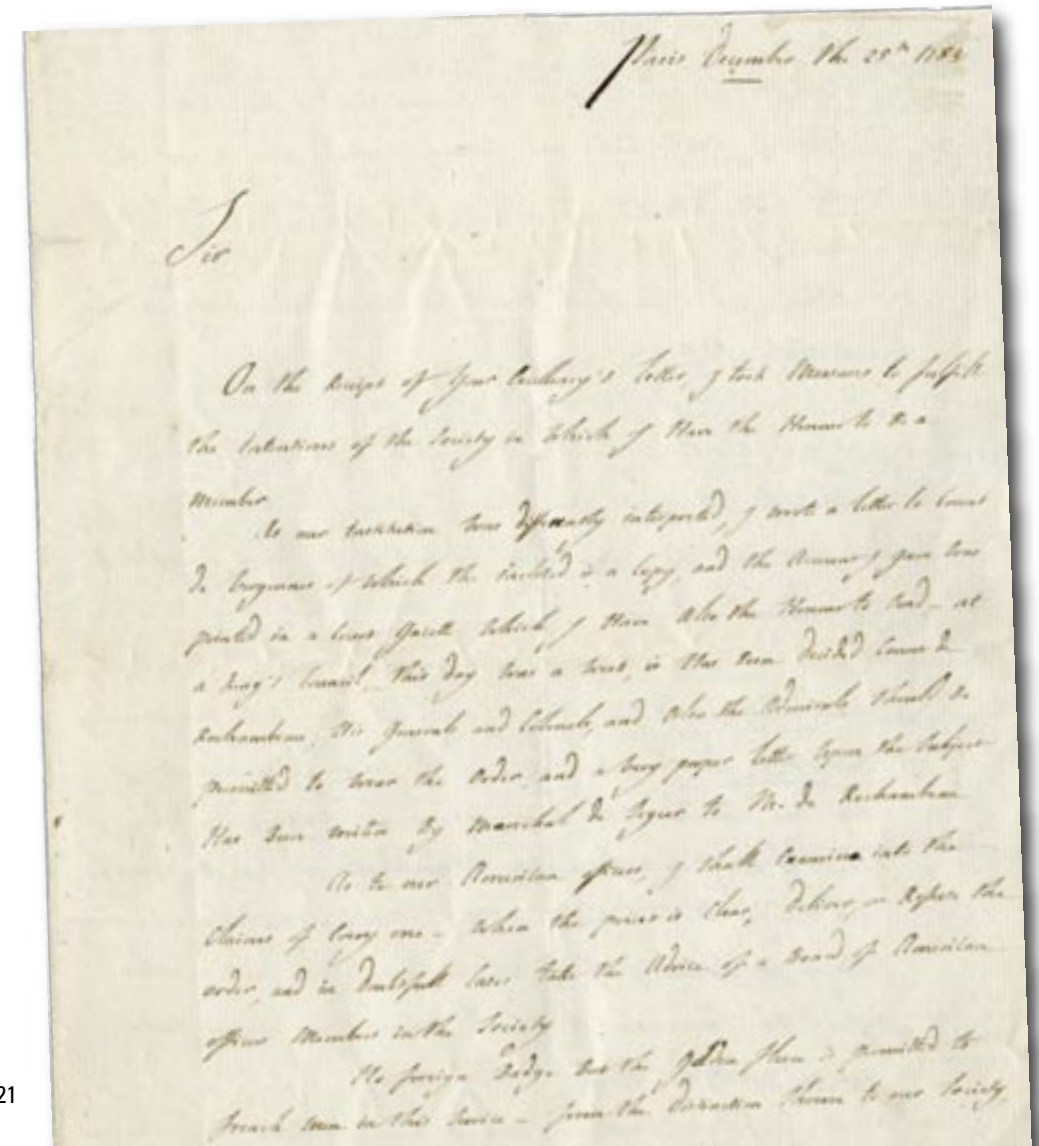 Paris December the 25th 1783
Sir
On the Receipt of Your Excellency's letter, I took Measures to fulfill
the Intentions of the Society in Which I Have the Honour to Be a
Member
As our Institution Was differently interpreted, I wrote a letter to Count
de Vergennes of Which the inclosed is a Copy, and the Answer I gave Was
printed in a Gazette Which I Have Also the Honour to Send – at
a King's Council this day Was a it Has Been decided Count de
Rochambeau, His Generals and Colonels, and Also the Admirals Should Be
permitted to Wear the Order, and a Very proper letter Upon the Subject
Has Been written By Marechal de Segur to M. de Rochambeau
As to our American officers, I shall Examine into the
Claims of Every one – When the is Clear, deliver, or Refuse the
order, and in doubtfull Cases take the Advice of a Board of American
officers Members in the Society
No foreign Badge But the Golden is permitted to
french Men in this Service – from the distinction Shown to our Society
21